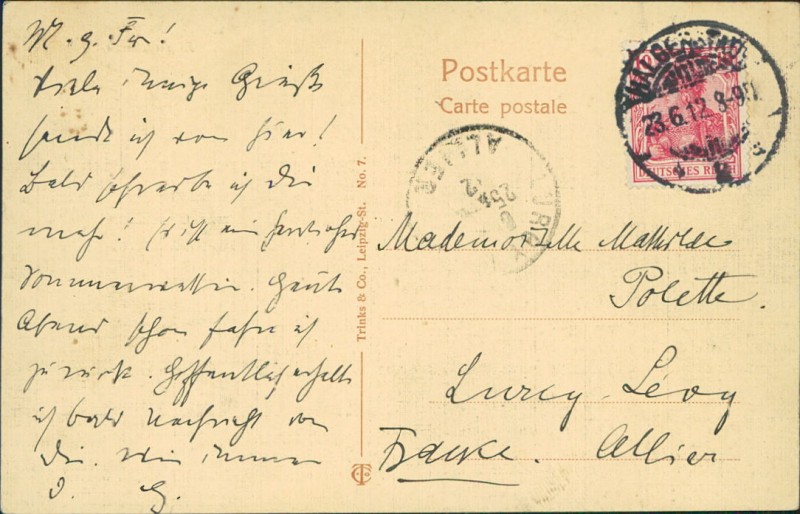 M. g. Fr!
Viele innige Grüße
sende ich von hier!
Bald schreibe ich dir
mehr! Es ist ein herrliches
Sommerwetter. Heute
Abend schon fahre ich
zurück. Hoffentlich erhalte
ich bald Nachricht von
dir. Wie immer
D. G.
Trinks & Co., Leipzig-St. No. 7.
Postkarte
Carte postale
23.6.12. 8-9
DEUTSCHES REICH
LURCY
ALLIER
Mademoiselle Mathilde
Polette.
Lurcy-Lévy
France. Allier